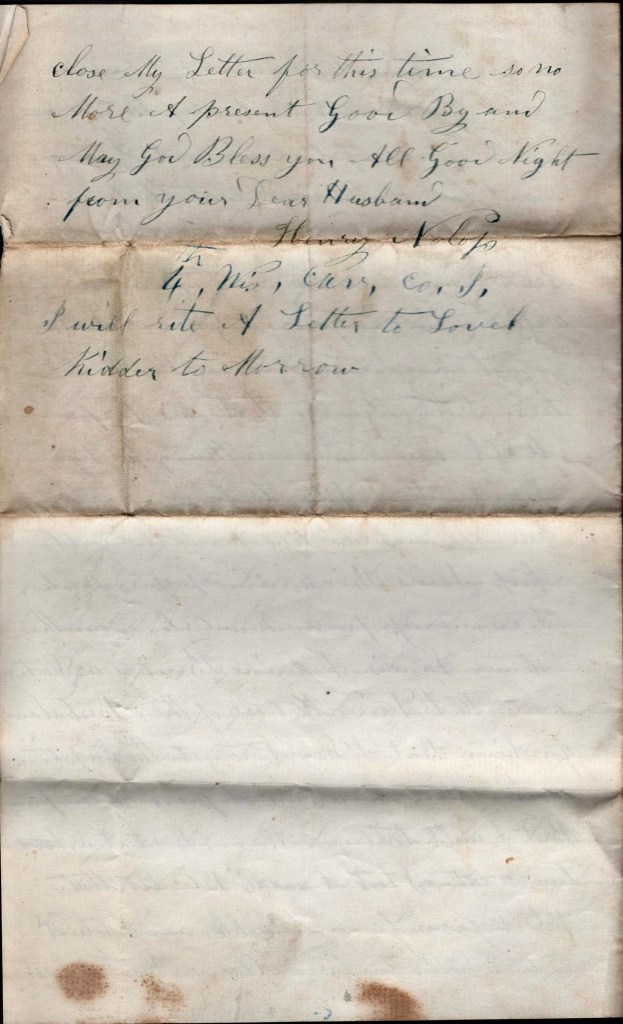 close My Letter for this time so no
More A present Good By and
May God Bless you All Good Night
from your Dear Husband
Henry Nolop
4th, Wis, Cav, Co. I,
I will rite A Letter to Lovel
Kidder to Morrow